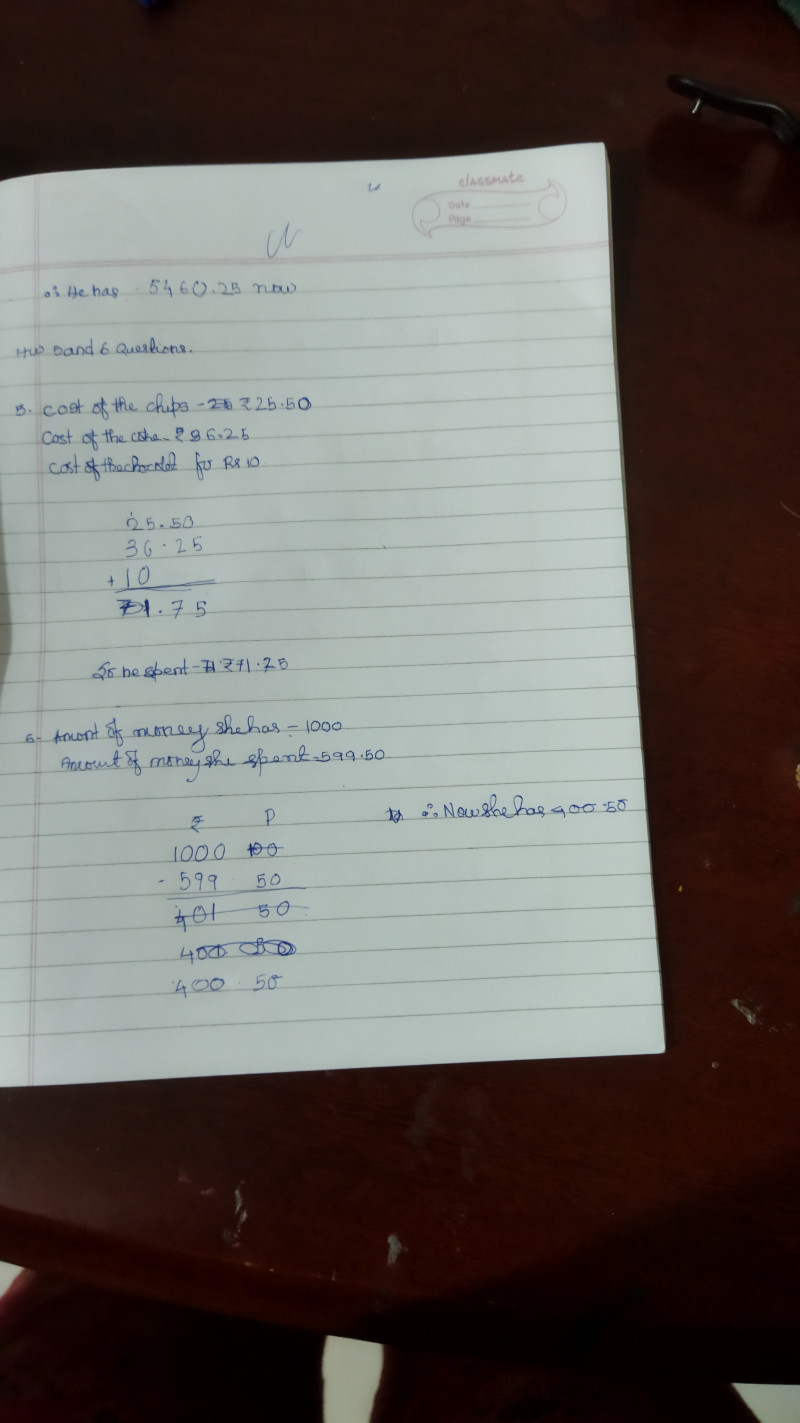 classmate
Date
Page
∴ He has 5460.25 now
HW 5 and 6 Questions.
5. Cost of the chips - ₹25.50
Cost of the - ₹36.25
Cost of the for Rs 10
25.50
36.25
+ 10
71.75
So he spent - ₹71.75
6- Amont of money she has - 1000
Amount of money she spent - 599.50
₹ P
∴ Now she has 400.50
1000 100
- 599 50
401 50
400 50